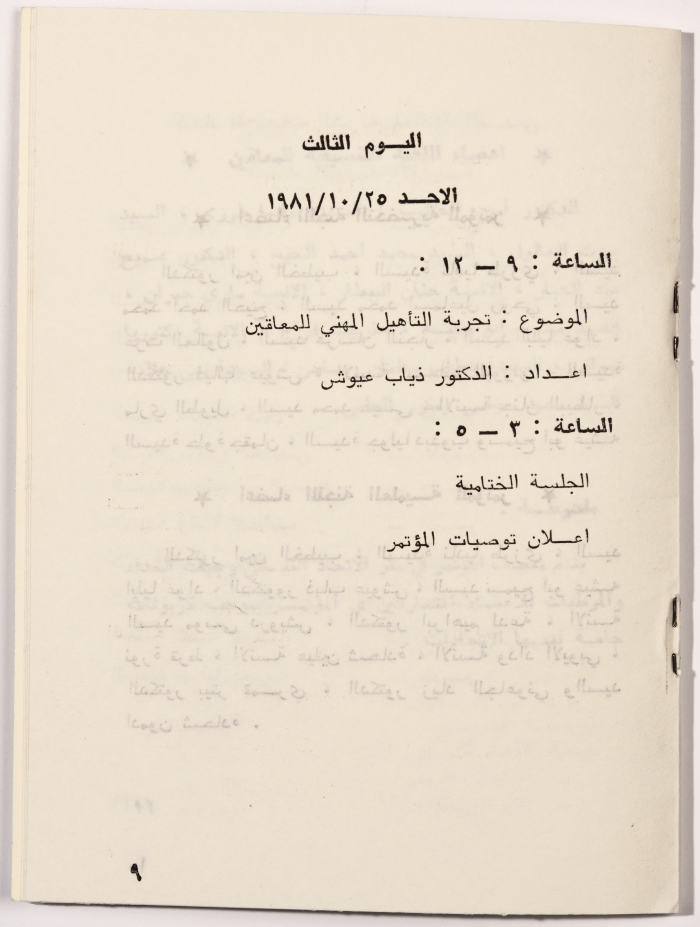 اليــوم الثالث
الاحــد ١٩٨١/١٠/٢٥
الساعة : ٩ ــ ١٢ :
الموضوع : تجربة التأهيل المهني للمعاقين
اعــداد : الدكتور ذياب عيوش
الساعة : ٣ ــ ٥ :
الجلسة الختامية
اعــلان توصيات المؤتمر
٩